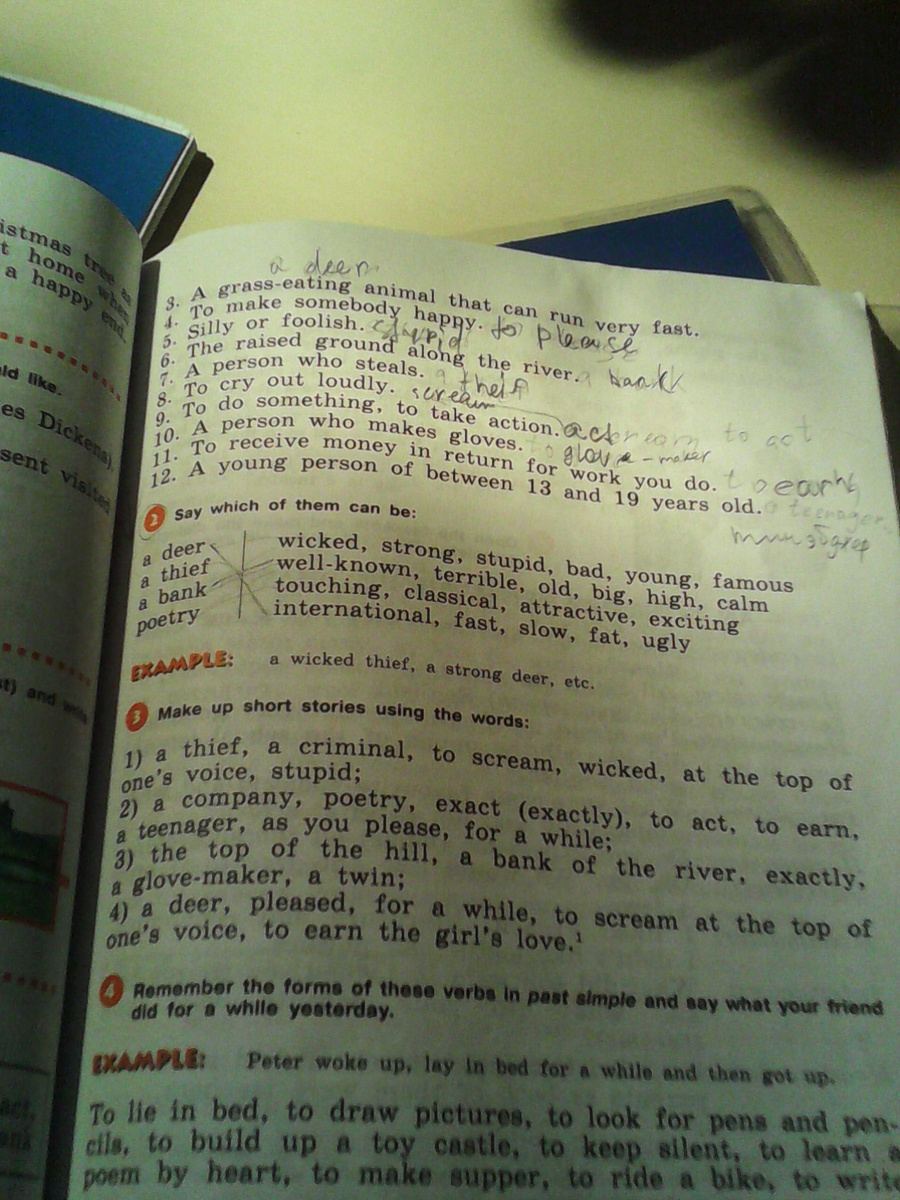 istmas tree
t home when
a happy end.
ld like.
es Dickens)
sent visited
a deer
3. A grass-eating animal that can run very fast.
4. To make somebody happy. to please
5. Silly or foolish. stupid
6. The raised ground along the river. a bank
7. A person who steals. a
8. To cry out loudly. scream
9. To do something, to take action. act to act
10. A person who makes gloves. glove-maker
11. To receive money in return for work you do. to earn
12. A young person of between 13 and 19 years old. a teenager
2 Say which of them can be:
a deer wicked, strong, stupid, bad, young, famous
a thief well-known, terrible, old, big, high, calm
a bank touching, classical, attractive, exciting
poetry international, fast, slow, fat, ugly
EXAMPLE: a wicked thief, a strong deer, etc.
3 Make up short stories using the words:
1) a thief, a criminal, to scream, wicked, at the top of
one's voice, stupid;
2) a company, poetry, exact (exactly), to act, to earn,
a teenager, as you please, for a while;
3) the top of the hill, a bank of the river, exactly,
a glove-maker, a twin;
4) a deer, pleased, for a while, to scream at the top of
one's voice, to earn the girl's love.¹
4 Remember the forms of these verbs in past simple and say what your friend
did for a while yesterday.
EXAMPLE: Peter woke up, lay in bed for a while and then got up.
To lie in bed, to draw pictures, to look for pens and pen-
cils, to build up a toy castle, to keep silent, to learn a
poem by heart, to make supper, to ride a bike, to write